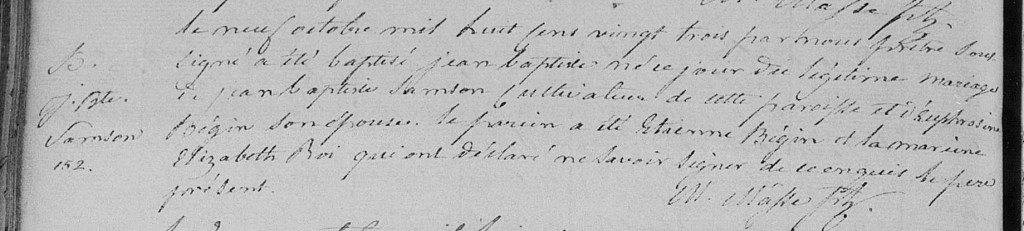 M. Masse ptr.
le neuf octobre mil huit sens vingt trois par nous prêtre sous
B. signé a été baptisé jean baptiste né ce jour du légitime mariage
j. Bte. de jean baptiste Samson Cultivateur de cette paroisse et d'Euphrosine
Samson Bégin son épouse. le parein a été Etienne Bégin et la mareine
182. Elizabeth Roi qui ont déclaré ne savoir signer de ce enquis le pere
présent.
M. Masse ptr.